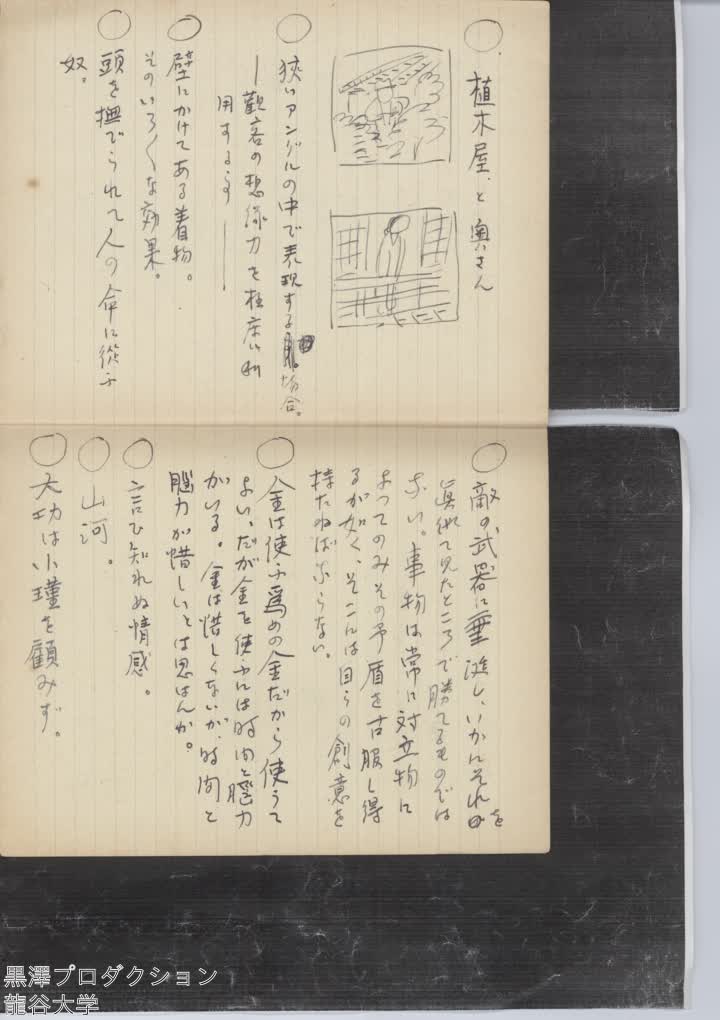 植木屋と奥さん
狭いアングルの中で表現する場合。
―觀客の想像力を極度に利
用する事―
壁にかけてある着物。
そのいろ〱な効果。
頭を撫でられて人の命に從ふ
奴。
敵の武器に垂涎し、いかにそれを
眞似て見たところで勝てるものでは
ない。事物は常に対立物に
よつてのみその矛盾を古服し得
るが如く、そこには自らの創意を
持たねばならない。
金は使ふ爲めの金だから使うて
よい、だが金を使ふには時间と腦力
がいる。金は惜しくないが、時间と
腦力が惜しいとは思はんか。
言ひ知れぬ情感。
山河。
大功は小瑾を顧みず。
黒澤プロダクション
龍谷大学